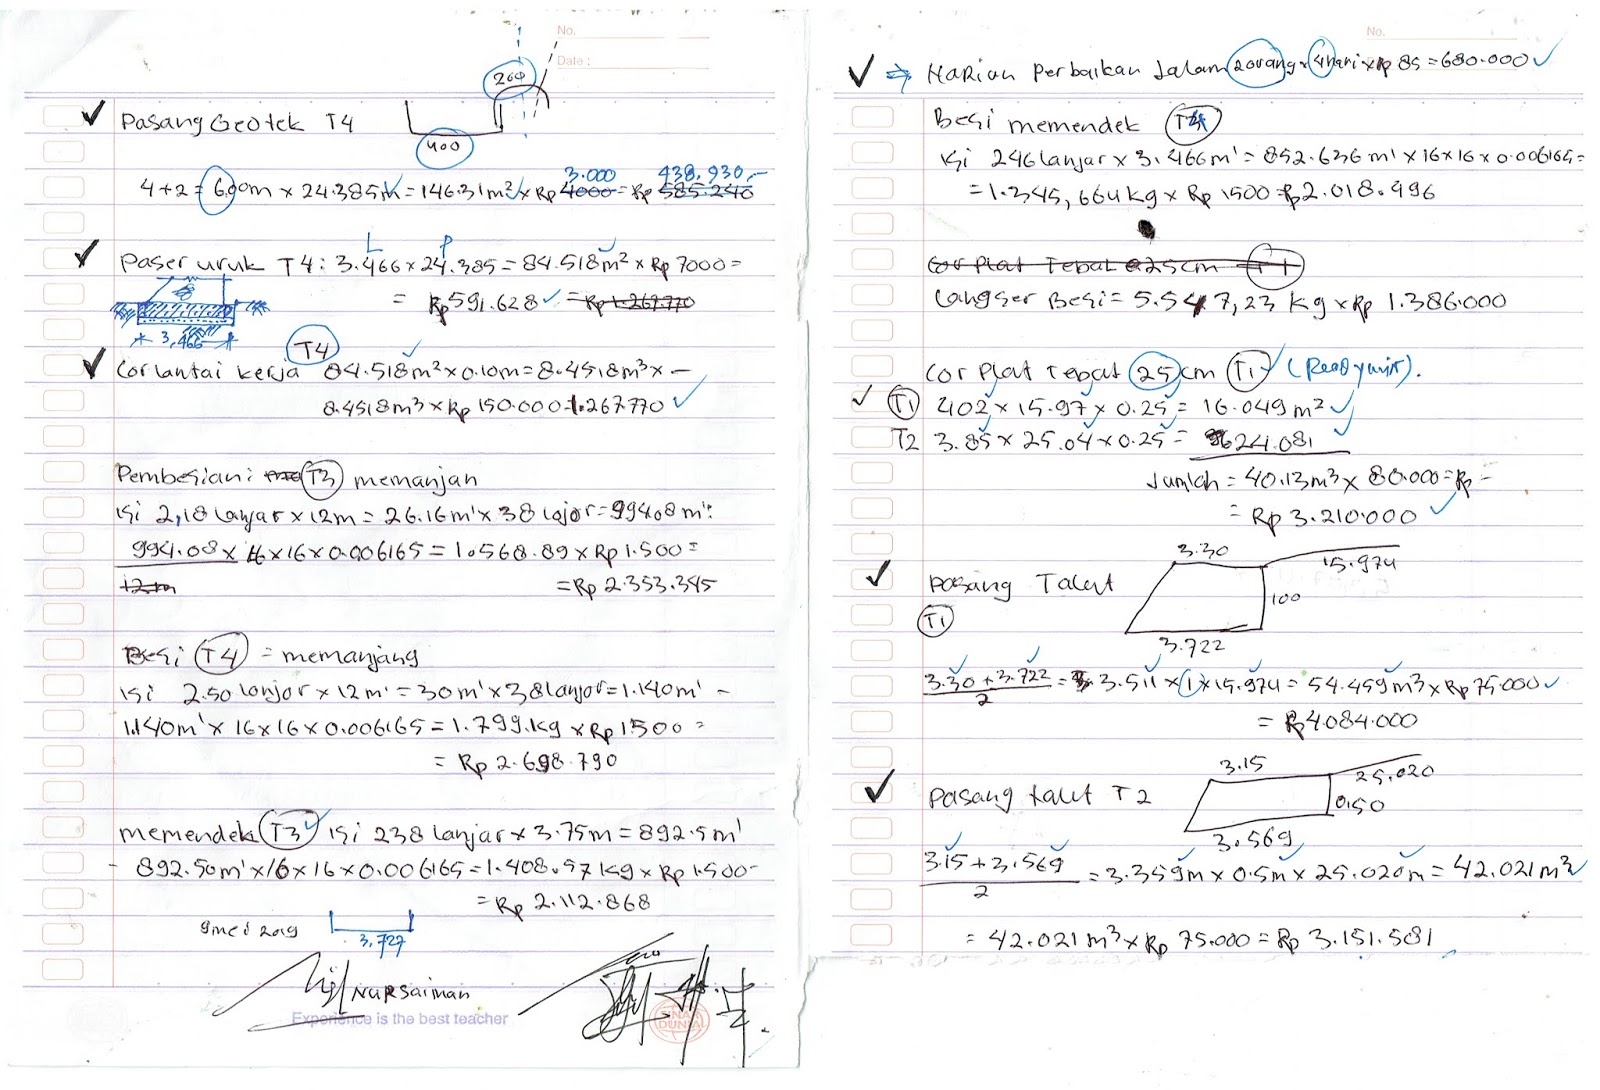 No.
Date:
200
400
✓ Pasang Geotek T4
3.000 438.930,-
4+2 = 6.00m x 24.385m = 146.31m² x Rp 4000 = Rp 585.240
L P
✓ Paser uruk T4: 3.466 x 24.385 = 84.518m² x Rp 7000 =
= Rp 591.628 = Rp 1.267.770
3,466
✓ Cor lantai kerja T4 84.518m² x 0.10m = 8.4518m³ x -
8.4518m³ x Rp 150.000 = 1.267.770
Pembesian: T3 memanjan
isi 2,18 lanjar x 12m = 26.16m' x 38 lojor = 994.08m':
994.08 x 16 x 16 x 0.006165 = 1.568.89 x Rp 1.500 =
12 m
= Rp 2.353.345
Besi T4 = memanjang
isi 2.50 lonjor x 12m' = 30m' x 38 lanjor = 1.140m' -
1.140m' x 16 x 16 x 0.006165 = 1.799.kg x Rp 1500 =
= Rp 2.698.790
memendek T3 isi 238 lanjar x 3.75m = 892.5m'
- 892.50m' x 16 x 16 x 0.006165 = 1.408.57 kg x Rp 1.500 -
= Rp 2.112.868
9 mei 2019
3,727
Nursaiman
Experience is the best teacher
SINAR DUNIA
No.
✓ ⇒ Harian Perbaikan Jalam 2 orang x 4 hari x Rp 85 = 680.000 ✓
Besi memendek T4
isi 246 lanjar x 3.466m' = 852.636 m' x 16 x 16 x 0.006165 =
= 1.345,664 kg x Rp 1500 = Rp 2.018.496
Cor Plat Tebal 25cm T1
Langser Besi = 5.547,23 kg x Rp 1.386.000
Cor Plat Tebat 25 cm T1 (Readymix).
✓ T1 402 x 15.97 x 0.25 = 16.049 m² ✓
T2 3.85 x 25.04 x 0.25 = 24.081 ✓
Jumlah = 40.13m³ x 80.000 = Rp -
= Rp 3.210.000 ✓
3.30 15.974
✓ Pasang Talut
100
T1
3.722
3.30 + 3.722 = 3.511 x 1 x 15.974 = 54.459m³ x Rp 75.000
2
= Rp 4.084.000
3.15 25.020
✓ Pasang talut T2
0.50
3.569
3.15 + 3.569 = 3.359m x 0.5m x 25.020m = 42.021m³
2
= 42.021m³ x Rp 75.000 = Rp 3.151.581